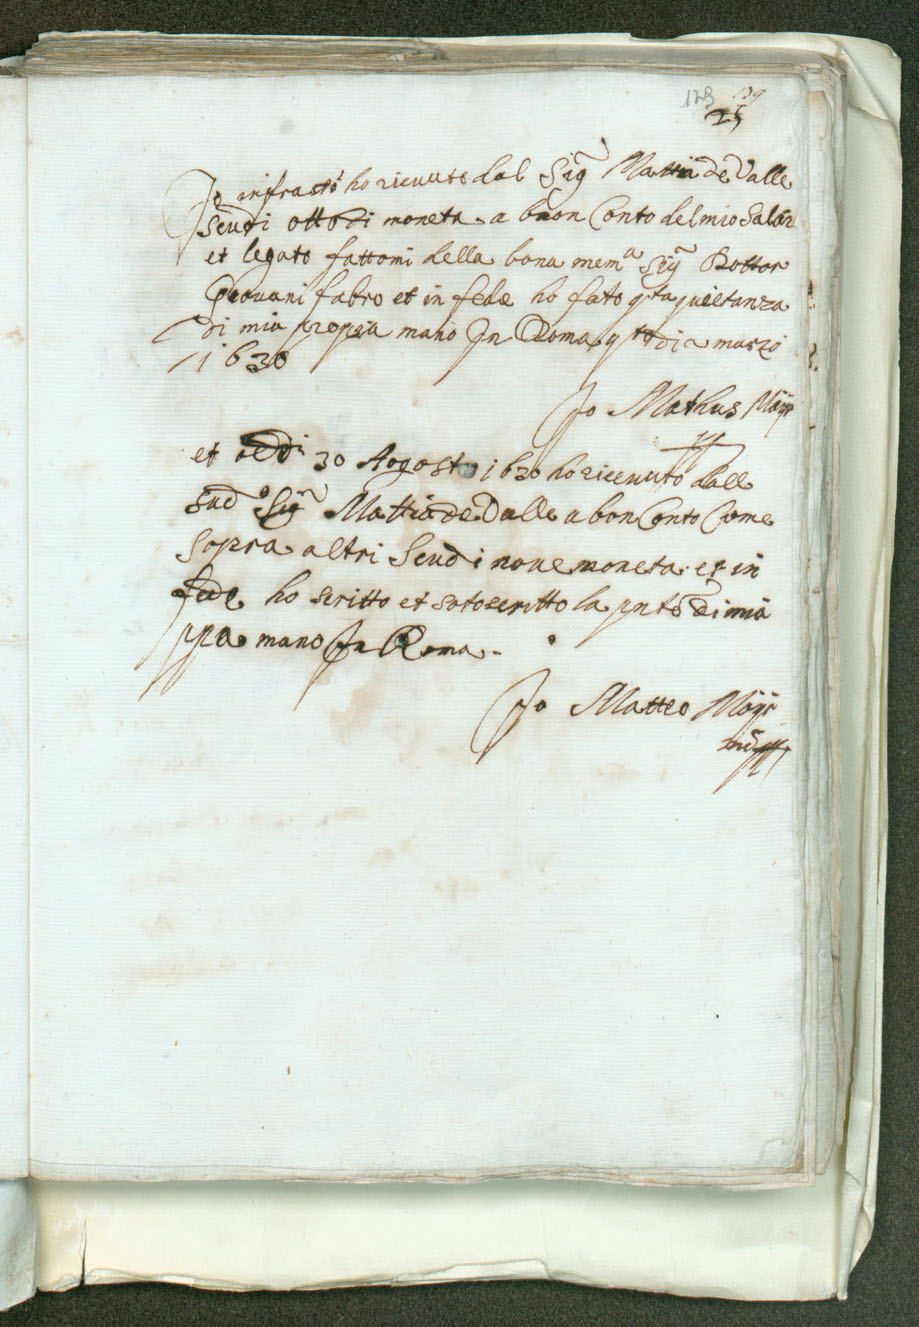 129 129
25
Jo infracto ho riceuuto dal Sigr Mattia de Valle
Scudi otto di moneta a buon Conto del mio Salar
et legato fattomi della bona mema Sigr Dottor
Giouani fabro et in fede ho fato qta quietanza
di mia propria mano Jn Roma qto di marzo
1630
Jo Mathus Mayr
et adi 30 Agosto 1630 ho riceuuto dall
sudo Sigr Mattia de Valle a bon Conto Come
sopra altri Scudi noue moneta et in
fede ho scritto et sotoscritto la pnte di mia
ppa mano Jn Roma.
Jo Matteo Mayr